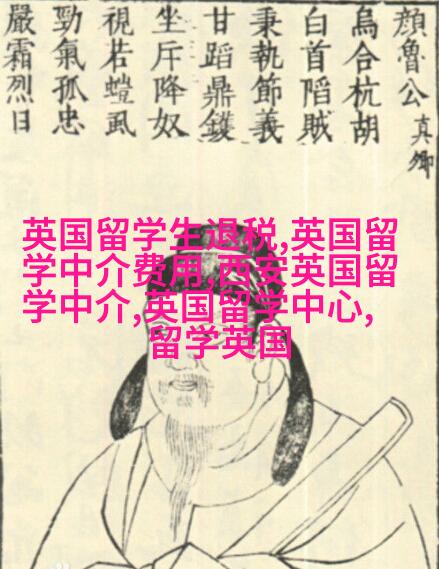 顔魯公真卿
烏合杭胡
白首陷賊
秉執節義
甘蹈鼎鑊
坐斥降奴
視若螘虱
勁氣孤忠
嚴霜烈日
英国留学生退税,英国留
学中介费用,西安英国留
学中介,英国留学中心,
留学英国